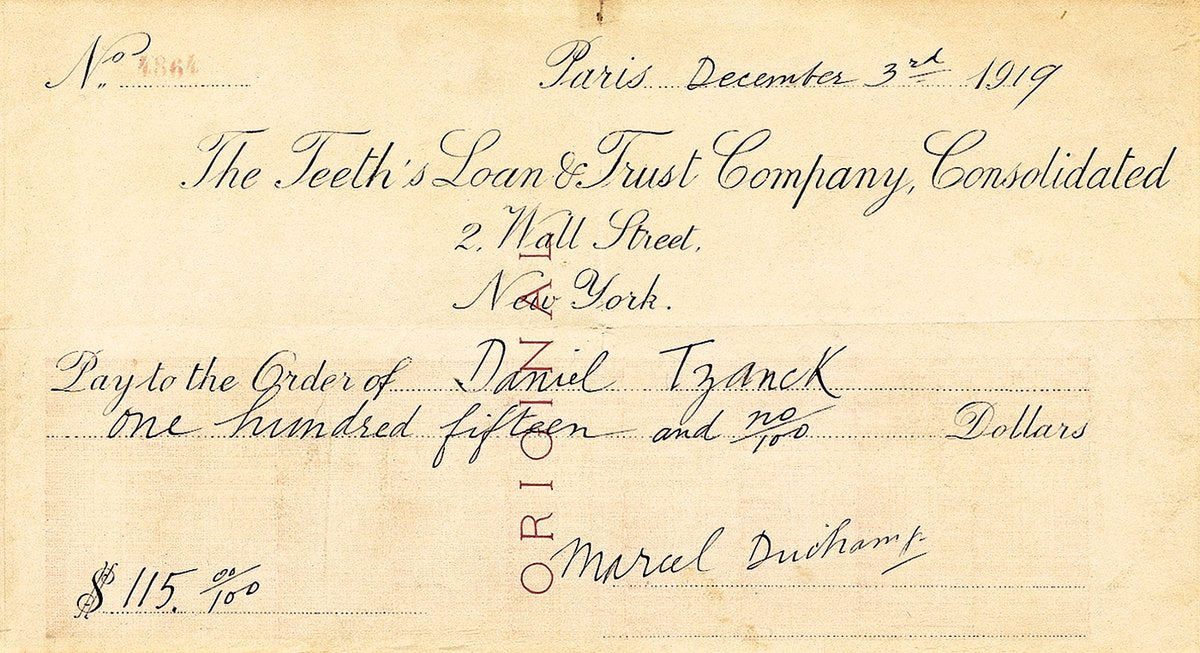 No. 4864
Paris December 3rd 1919
The Teeth's Loan & Trust Company, Consolidated
2, Wall Street.
New York.
Pay to the Order of Daniel Tzanck
one hundred fifteen and no/100 Dollars
ORIGINAL
Marcel Duchamp
$ 115. 00/100